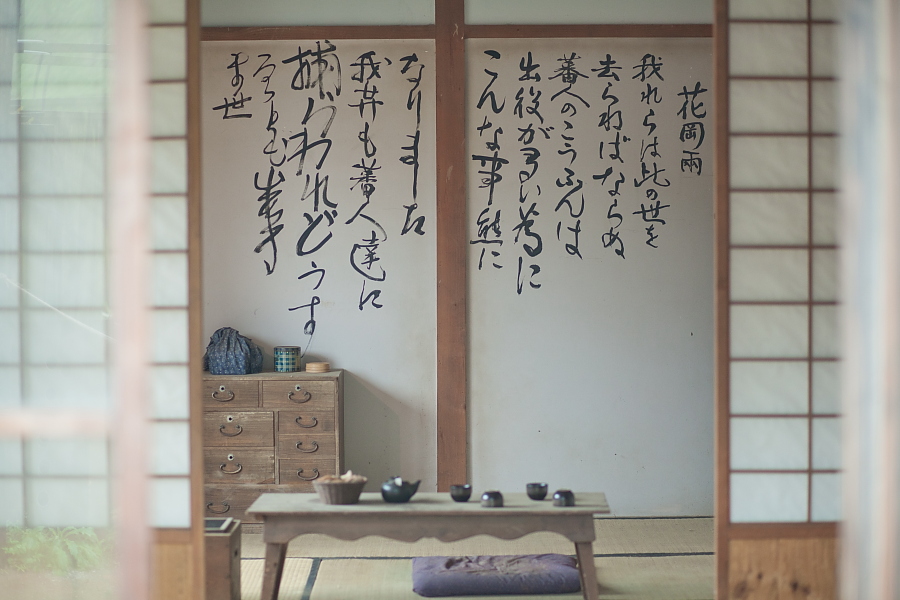 花岡兩
我れらは此の世を
去らねばならぬ
蕃人のこうふんは
出役が多い為に
こんな事件に
なりました
我等も蕃人達に
捕らわれどうす
ることも出来
ませ